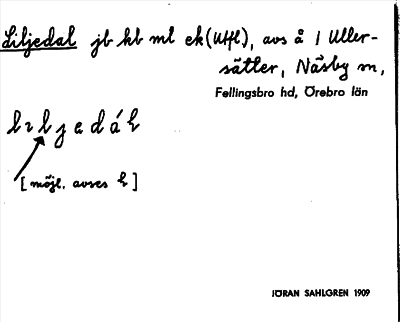 Liljedal jb kb ml ek (Utfl), avs å / Uller-
sätter, Näsby sn,
Fellingsbro hd, Örebro län
[möjl. avses
JÖRAN SAHLGREN 1909